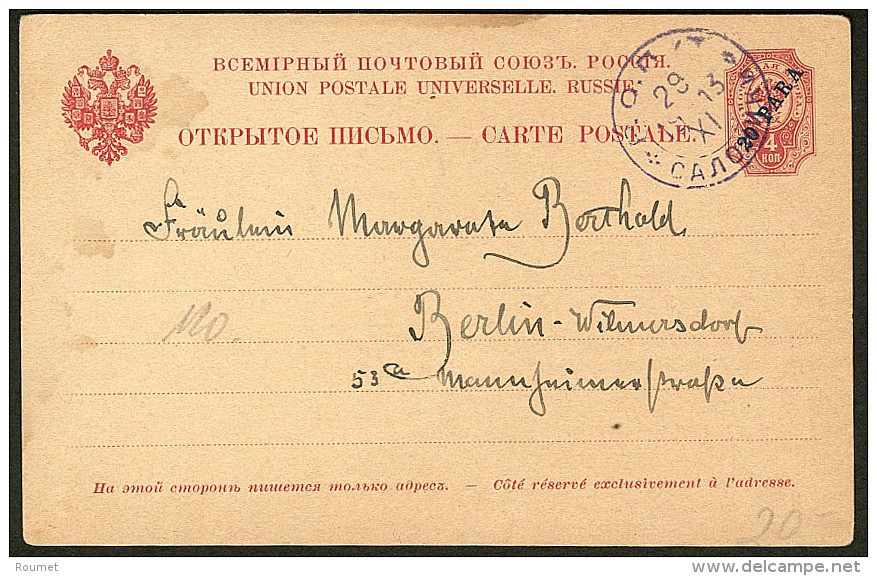 ВСЕМІРНЫЙ ПОЧТОВЫЙ СОЮЗЪ. РОССІЯ.
UNION POSTALE UNIVERSELLE. RUSSIE.
ОТКРЫТОЕ ПИСЬМО. — CARTE POSTALE.
29 13
XI
САЛОНИКИ
20 PARA
4
КОП
Fräulein Margarete Berthold
Berlin-Wilmersdorf
53a Mannheimerstraße
110.
На этой сторонѣ пишется только адресъ. — Côté réservé exclusivement à l'adresse.
20-
Roumet
www.delcampe.net